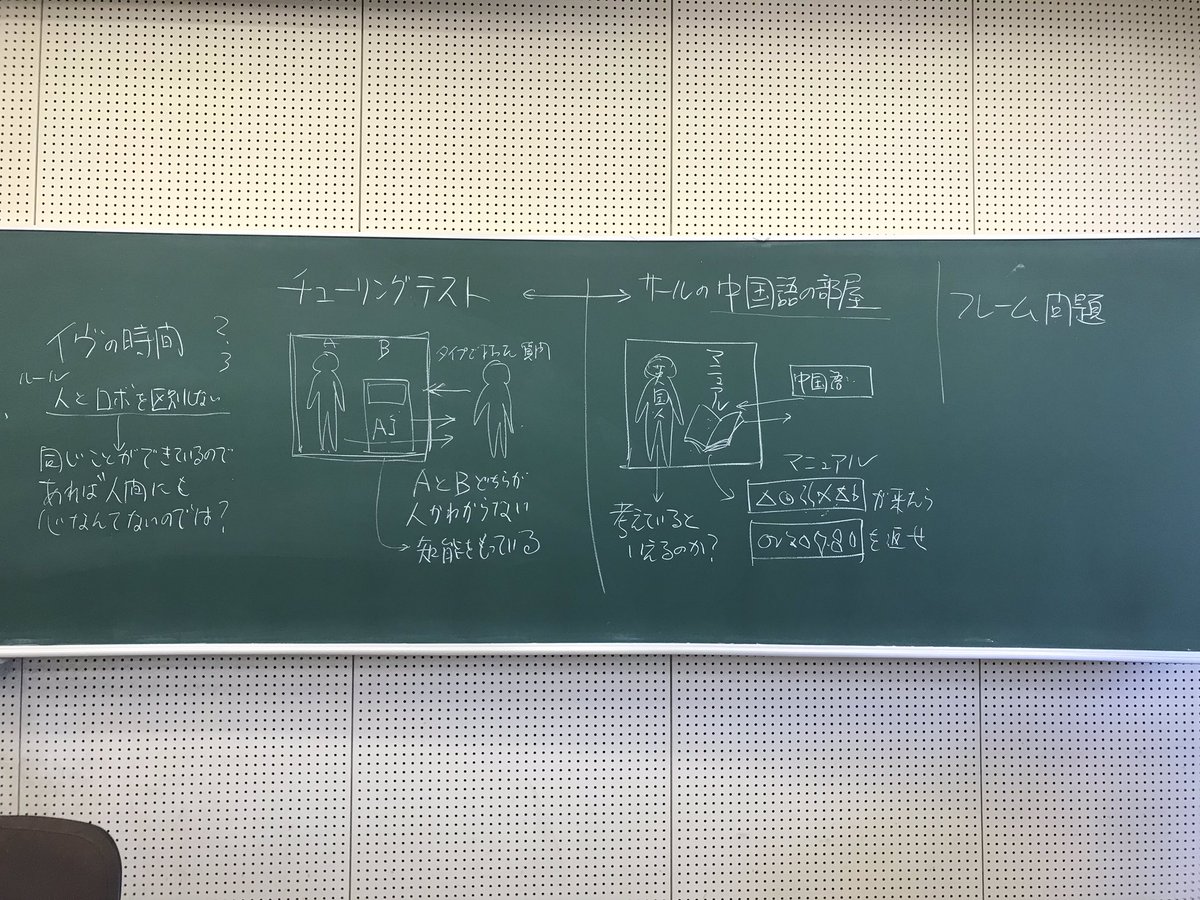 イヴの時間
2
3
ルール
人とロボを区別しない
同じことができているので
あれば人間にも
心なんてないのでは?
チューリングテスト
A
B
AI
タイプで打った質問
AとBどちらが
人かわからない
知能をもっている
サールの中国語の部屋
英国人
マニュアル
中国語
考えていると
いえるのか?
マニュアル
が来たら
を返せ
フレーム問題